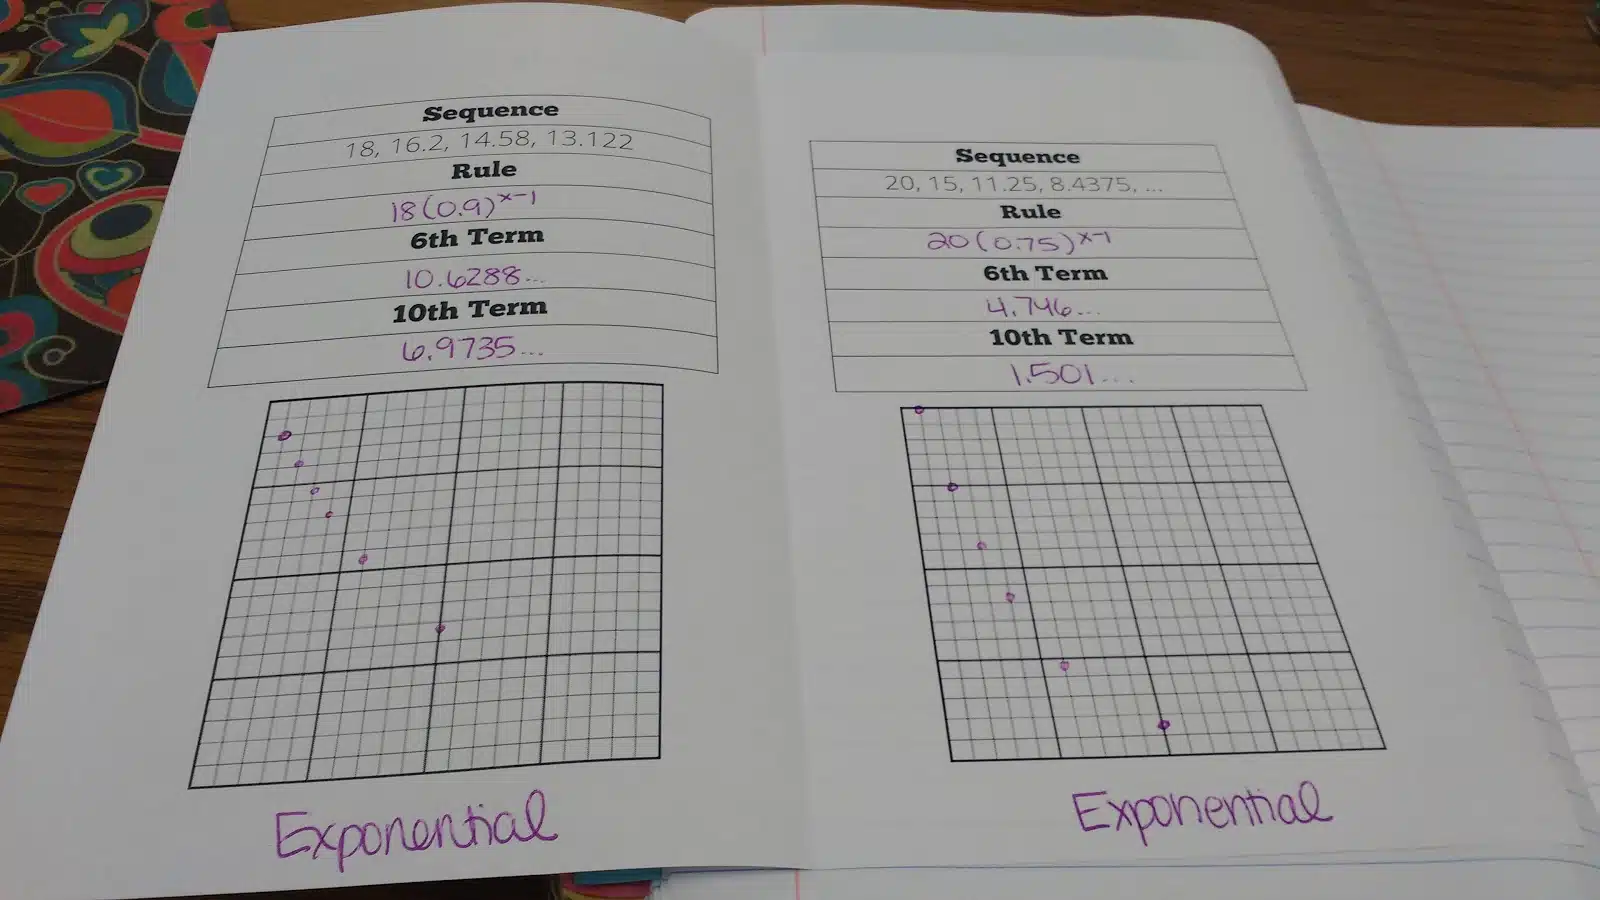 Sequence
18, 16.2, 14.58, 13.122
Rule
18(0.9)^x-1
6th Term
10.6288...
10th Term
6.9735...
Exponential
Sequence
20, 15, 11.25, 8.4375, ...
Rule
20(0.75)^x-1
6th Term
4.746...
10th Term
1.501...
Exponential